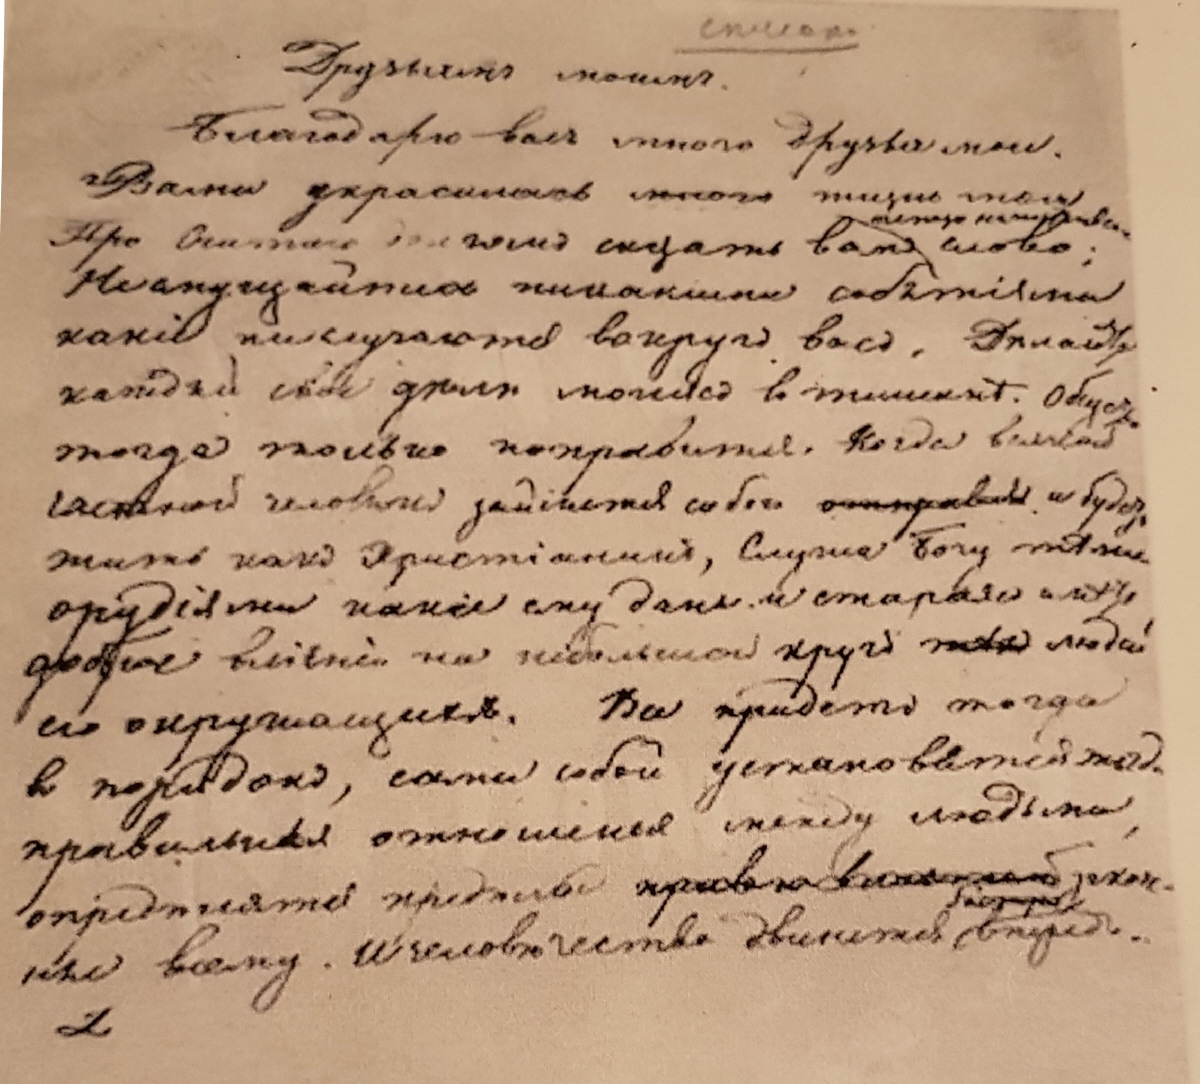 Друзьямъ моимъ.
Благодарю васъ много друзья мои.
Вами украсилась много жизнь моя
считаю долгомъ сказать вамъ слово;
Не смущайтесь никакими событіями
какіе ни случаются вокругъ васъ. Делайте
каждый свое дело молясь в тишинѣ. Общество
тогда только поправится. Когда всякой
частной человекъ займется собою и будетъ
жить какъ Христіанинъ, Служа Богу теми
орудіями какіе ему даны. и стараясь иметь
доброе вліяніе на небольшой кругъ людей
его окружающихъ. Все придетъ тогда
в порядокъ, сами собой установятся тогда
правильныя отношенья между людьми,
определятся пределы закон-
ные всему. И человечество двинется впередъ.